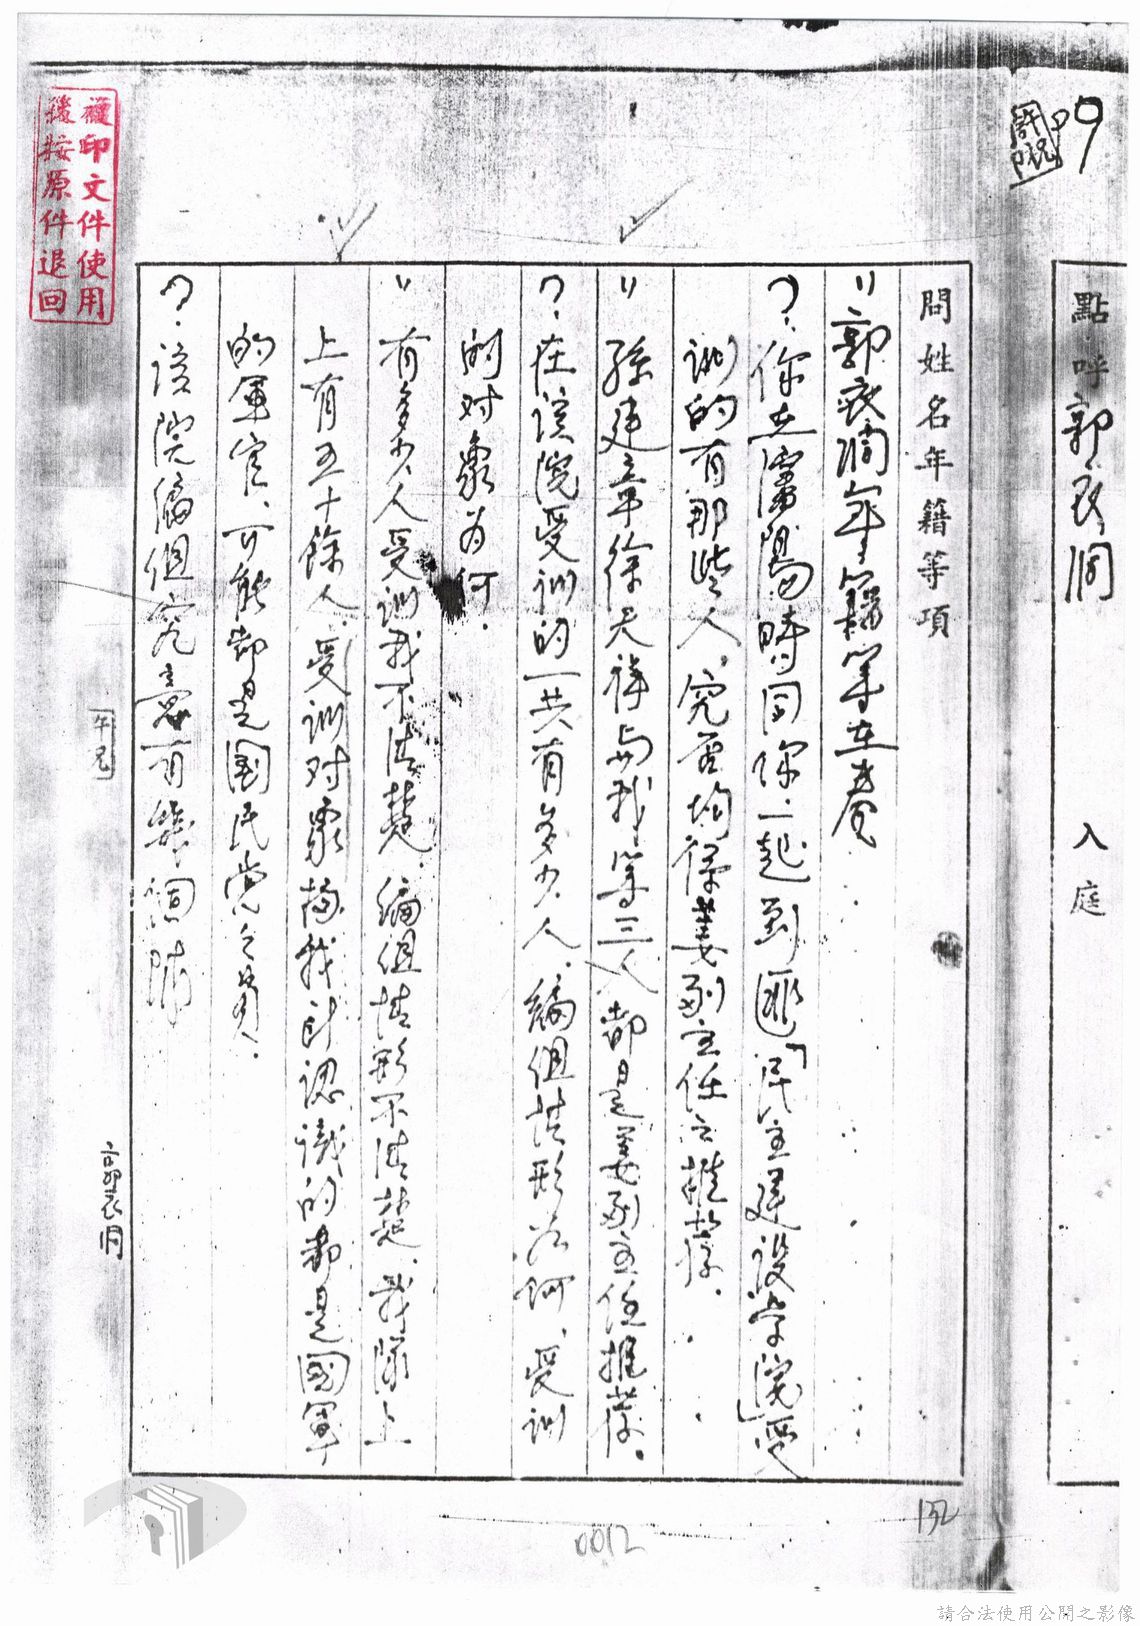 點呼郭衣洞 入庭
問姓名年籍等項
〃郭衣洞年籍等在卷
⁊.你在瀋陽時同你一起到匪「民主建設学院」受
訓的有那些人,究否均係姜副主任之推荐.
〃孫建章徐天祥与我等三人都是姜副主任推荐.
⁊.在該院受訓的一共有多少人,編組情形为何,受訓
的对象为何.
〃有多少人受訓我不清楚,編組情形不清楚,我隊上
上有五十餘人,受訓对象據我所認識的都是國軍
的軍官,可能都是国民党之
⁊.該院編組究竟有幾個
郭衣洞
複印文件使用
後按原件退回
0012
132
請合法使用公開之影像